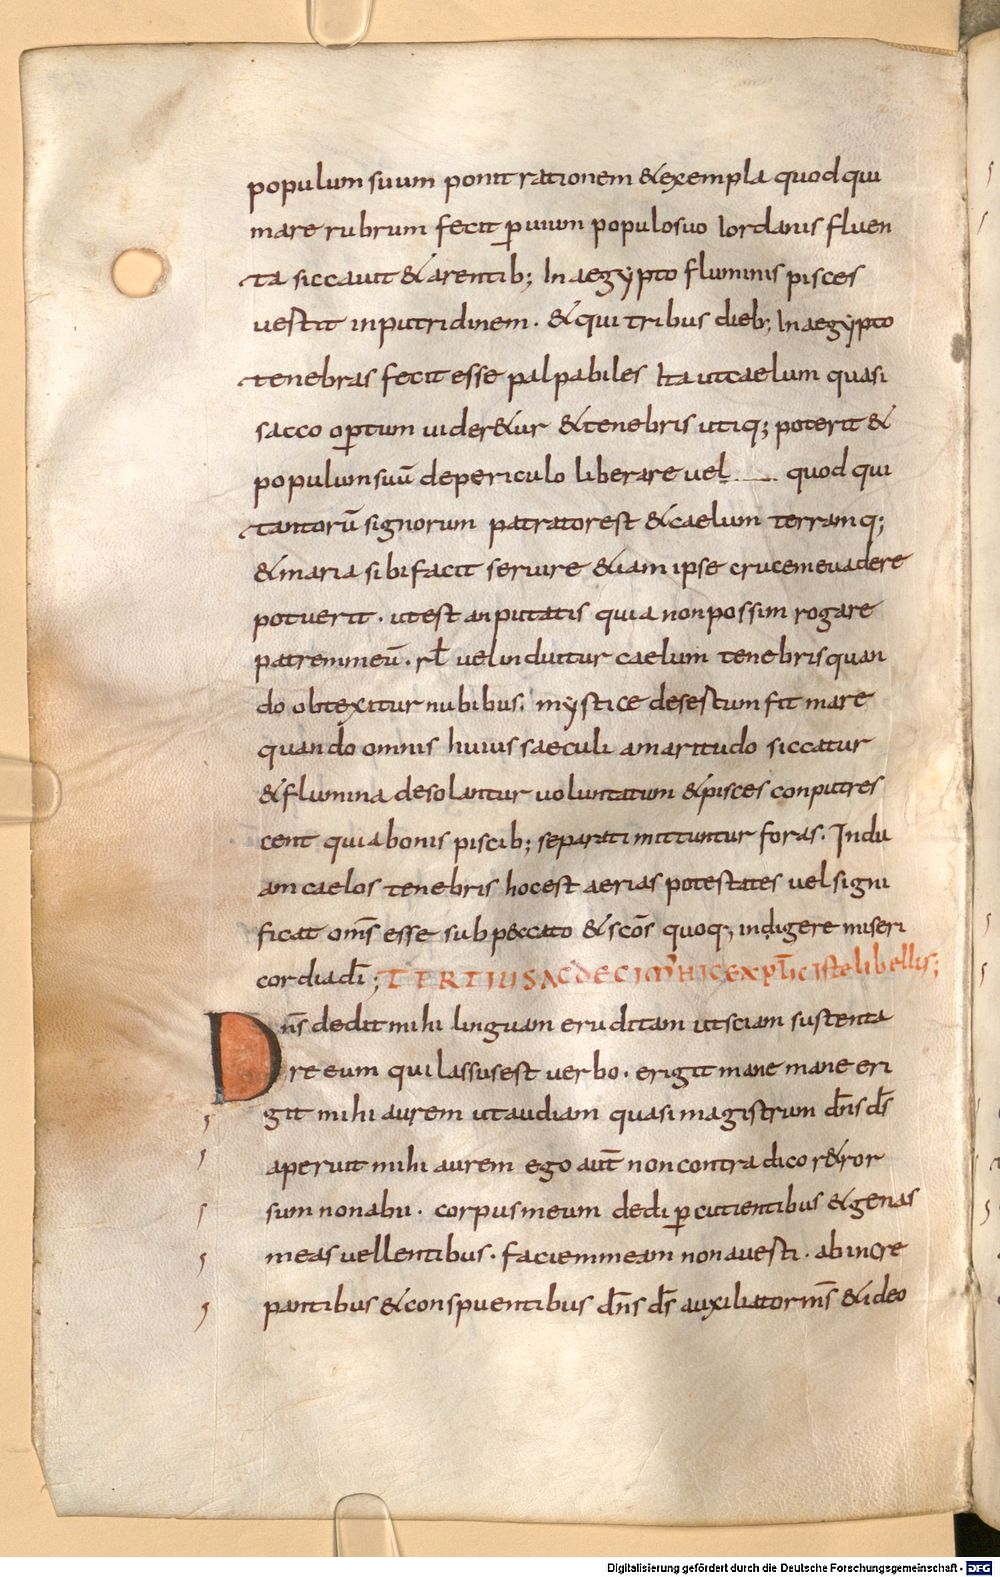 populum suum ponit rationem & exempla quod qui
mare rubrum fecit ꝑuium populo suo Iordanis fluen
ta siccauit & arentib; In aegypto fluminis pisces
uestit in putridinem . & qui tribus dieb; In aegypto
tenebras fecit esse palpabiles Ita ut caelum quasi
sacco oꝑtum uider&ur & tenebris utiq; poterit &
populum suū de periculo liberare uel quod qui
tantorū signorum patrator est & caelum terramq;
& maria sibi facit seruire &iam ipse crucem euadere
potuerit . ut est an putatis quia non possim rogare
patrem meū . rł uel induitur caelum tenebris quan
do obtexitur nubibus. mystice desestum fit mare
quando omnis huius saeculi amaritudo siccatur
& flumina desolantur uoluntatum & pisces conputres
cent quia bonis piscib; separati mittuntur foras . Indu
am caelos tenebris hoc est aerias potestates uel signi
ficat om̄s esse sub peccato & sc̄os quoq; indigere miseri
cordia dī ; TERTIUS AC DECIM' HIC EXPLIC iste libellis;
Dn̄s dedit mihi linguam eruditam ut sciam sustenta
re eum qui lassus est uerbo . erigit mane mane eri
git mihi aurem ut audiam quasi magistrum dn̄s d̄s
aperuit mihi aurem ego aut̄ non contradico r&ror
sum non abii . corpus meum dedi ꝑcutientibus & genas
meas uellentibus . faciem meam non auesti . ab incre
pantibus & conspuentibus dn̄s d̄s auxiliator m̄s & ideo
Digitalisierung gefördert durch die Deutsche Forschungsgemeinschaft - DFG